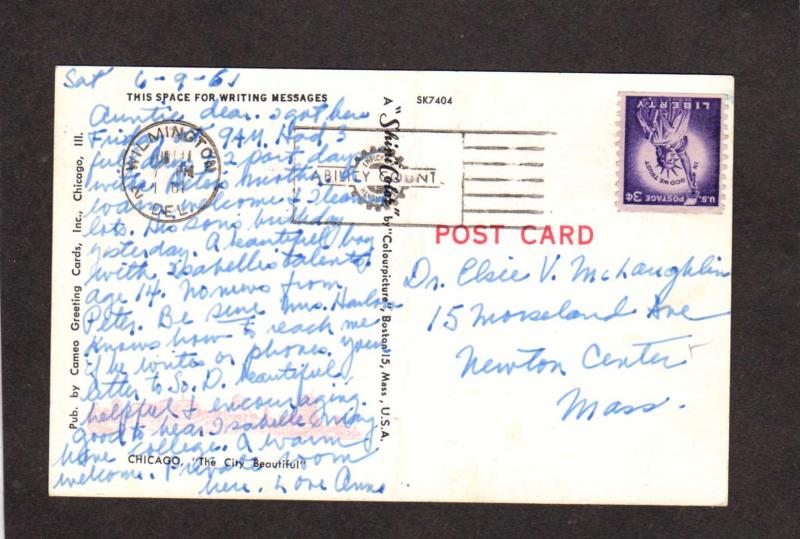 Sat 6-9-61
THIS SPACE FOR WRITING MESSAGES
SK7404
Auntie dear. I got here
Fri 9 AM. Had 3
full days 2 part days
with
welcome & I learn
lots. His son's birthday
yesterday. A beautiful boy
with Isabelle's talents,
age 14. No news from
Peter. Be sure Mrs.
knows how to reach me
if he writes or phones. Your
letter to So. D. beautiful,
helpful & encouraging.
good to hear Isabelle may
have College. A warm
welcome. Private room
here. Love Anna
CHICAGO, "The City Beautiful"
Pub. by Cameo Greeting Cards, Inc., Chicago, Ill.
A "Shini-Color" by "Colourpicture", Boston 15, Mass., U.S.A.
WILMINGTON
PM
DEL
ABILITY COUNT
U.S. POSTAGE 3¢
IN GOD WE TRUST
LIBERTY
POST CARD
Dr. Elsie V. McLaughlin
15 Moreland Ave
Newton Center
Mass.